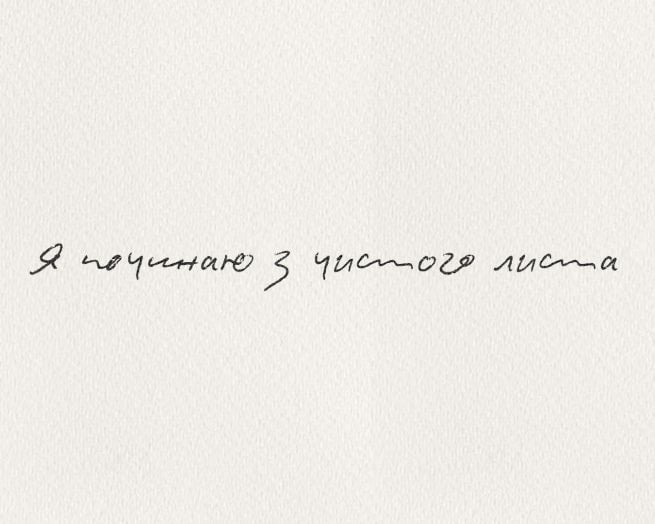 Я починаю з чистого листа